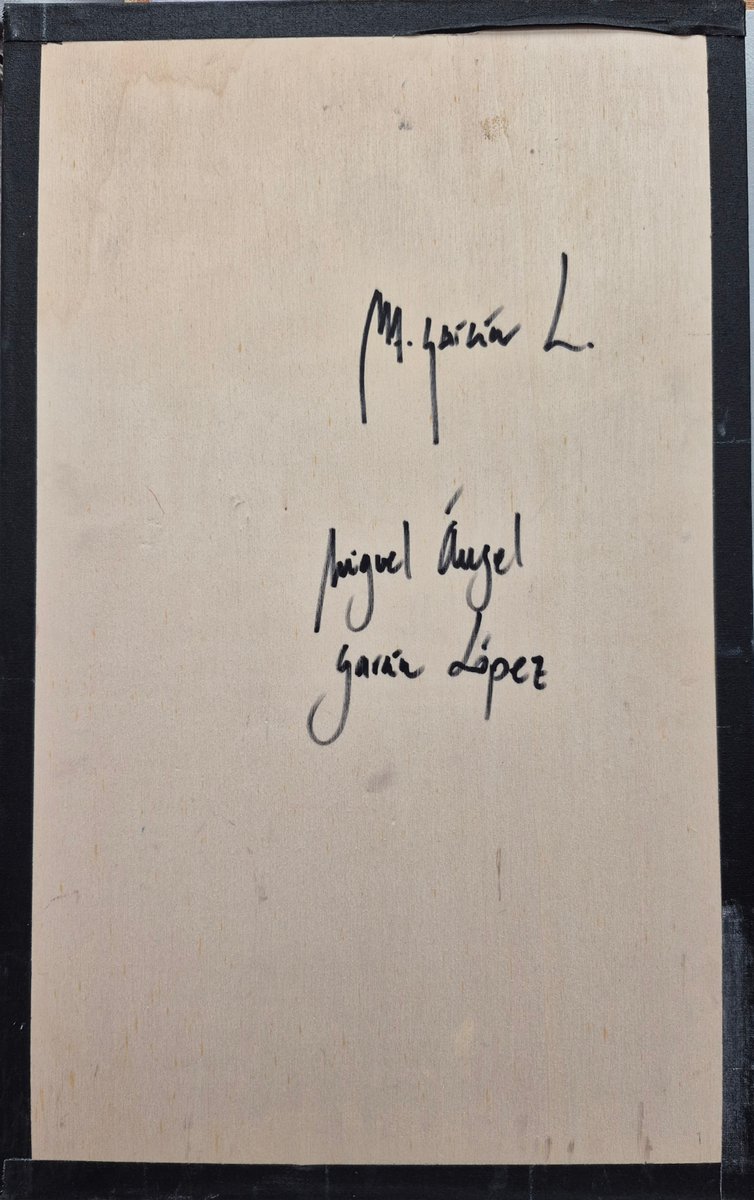 M. García L.
Miguel Ángel
García López